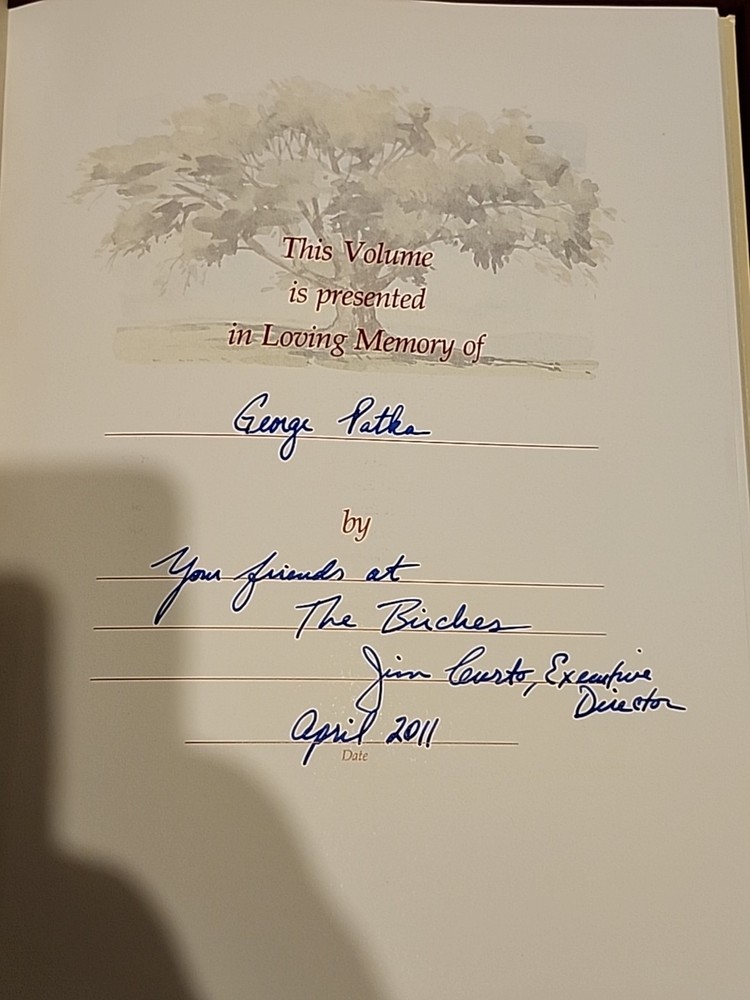 This Volume
is presented
in Loving Memory of
George Patka
by
Your friends at
The Birches
Jim Curto, Executive
Director
April 2011
Date